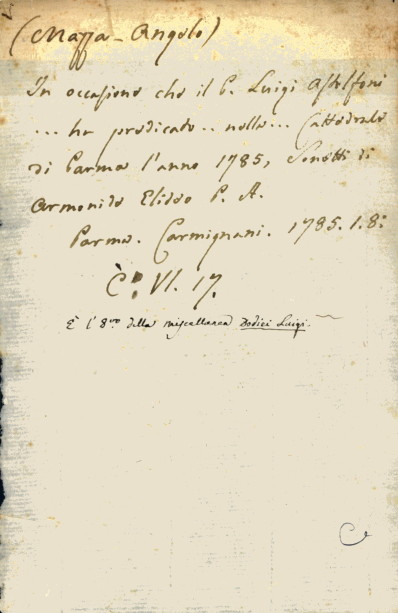 (Mazza - Angelo)
In occasione che il P. Luigi Astolfoni
... ha predicato .. nella ... Cattedrale
di Parma l'anno 1785, Sonetti di
Armonide Elideo P. A.
Parma. Carmignani. 1785. 1. 8:
C. VI. 17.
È l'8vo della miscellanea Dodici Luigi.